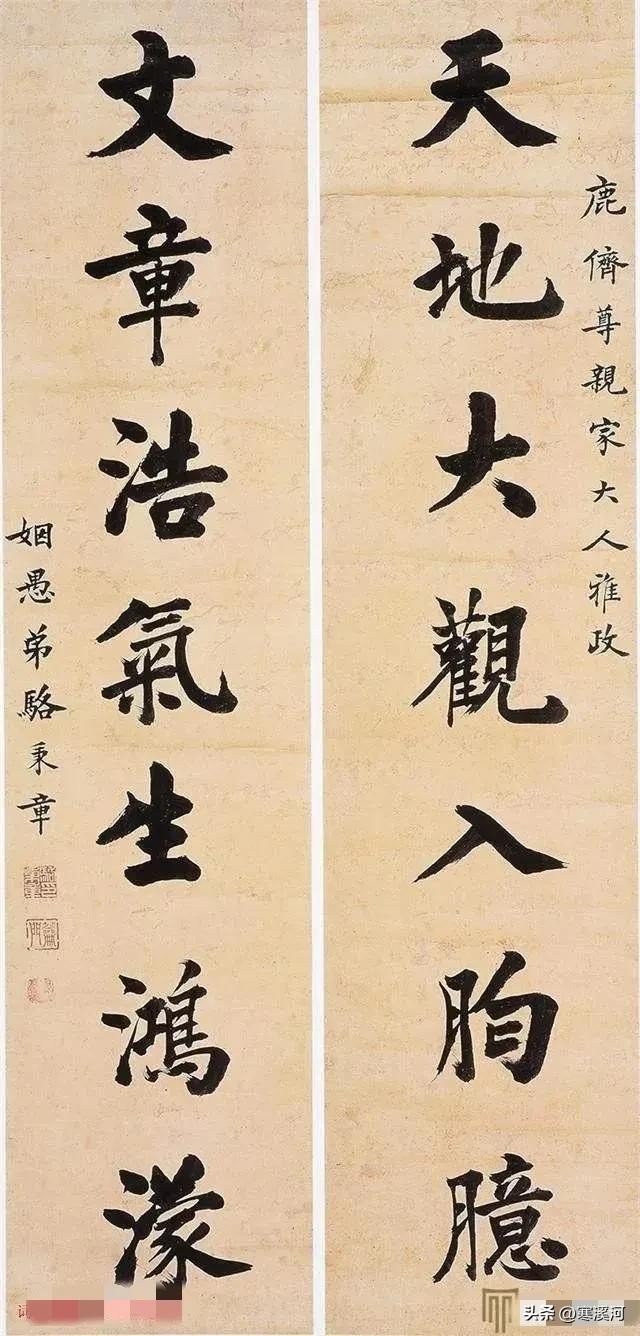 鹿儕尊親家大人雅政
天地大觀入胷臆
文章浩氣生鴻濛
姻愚弟駱秉章
头条 @寒溪河